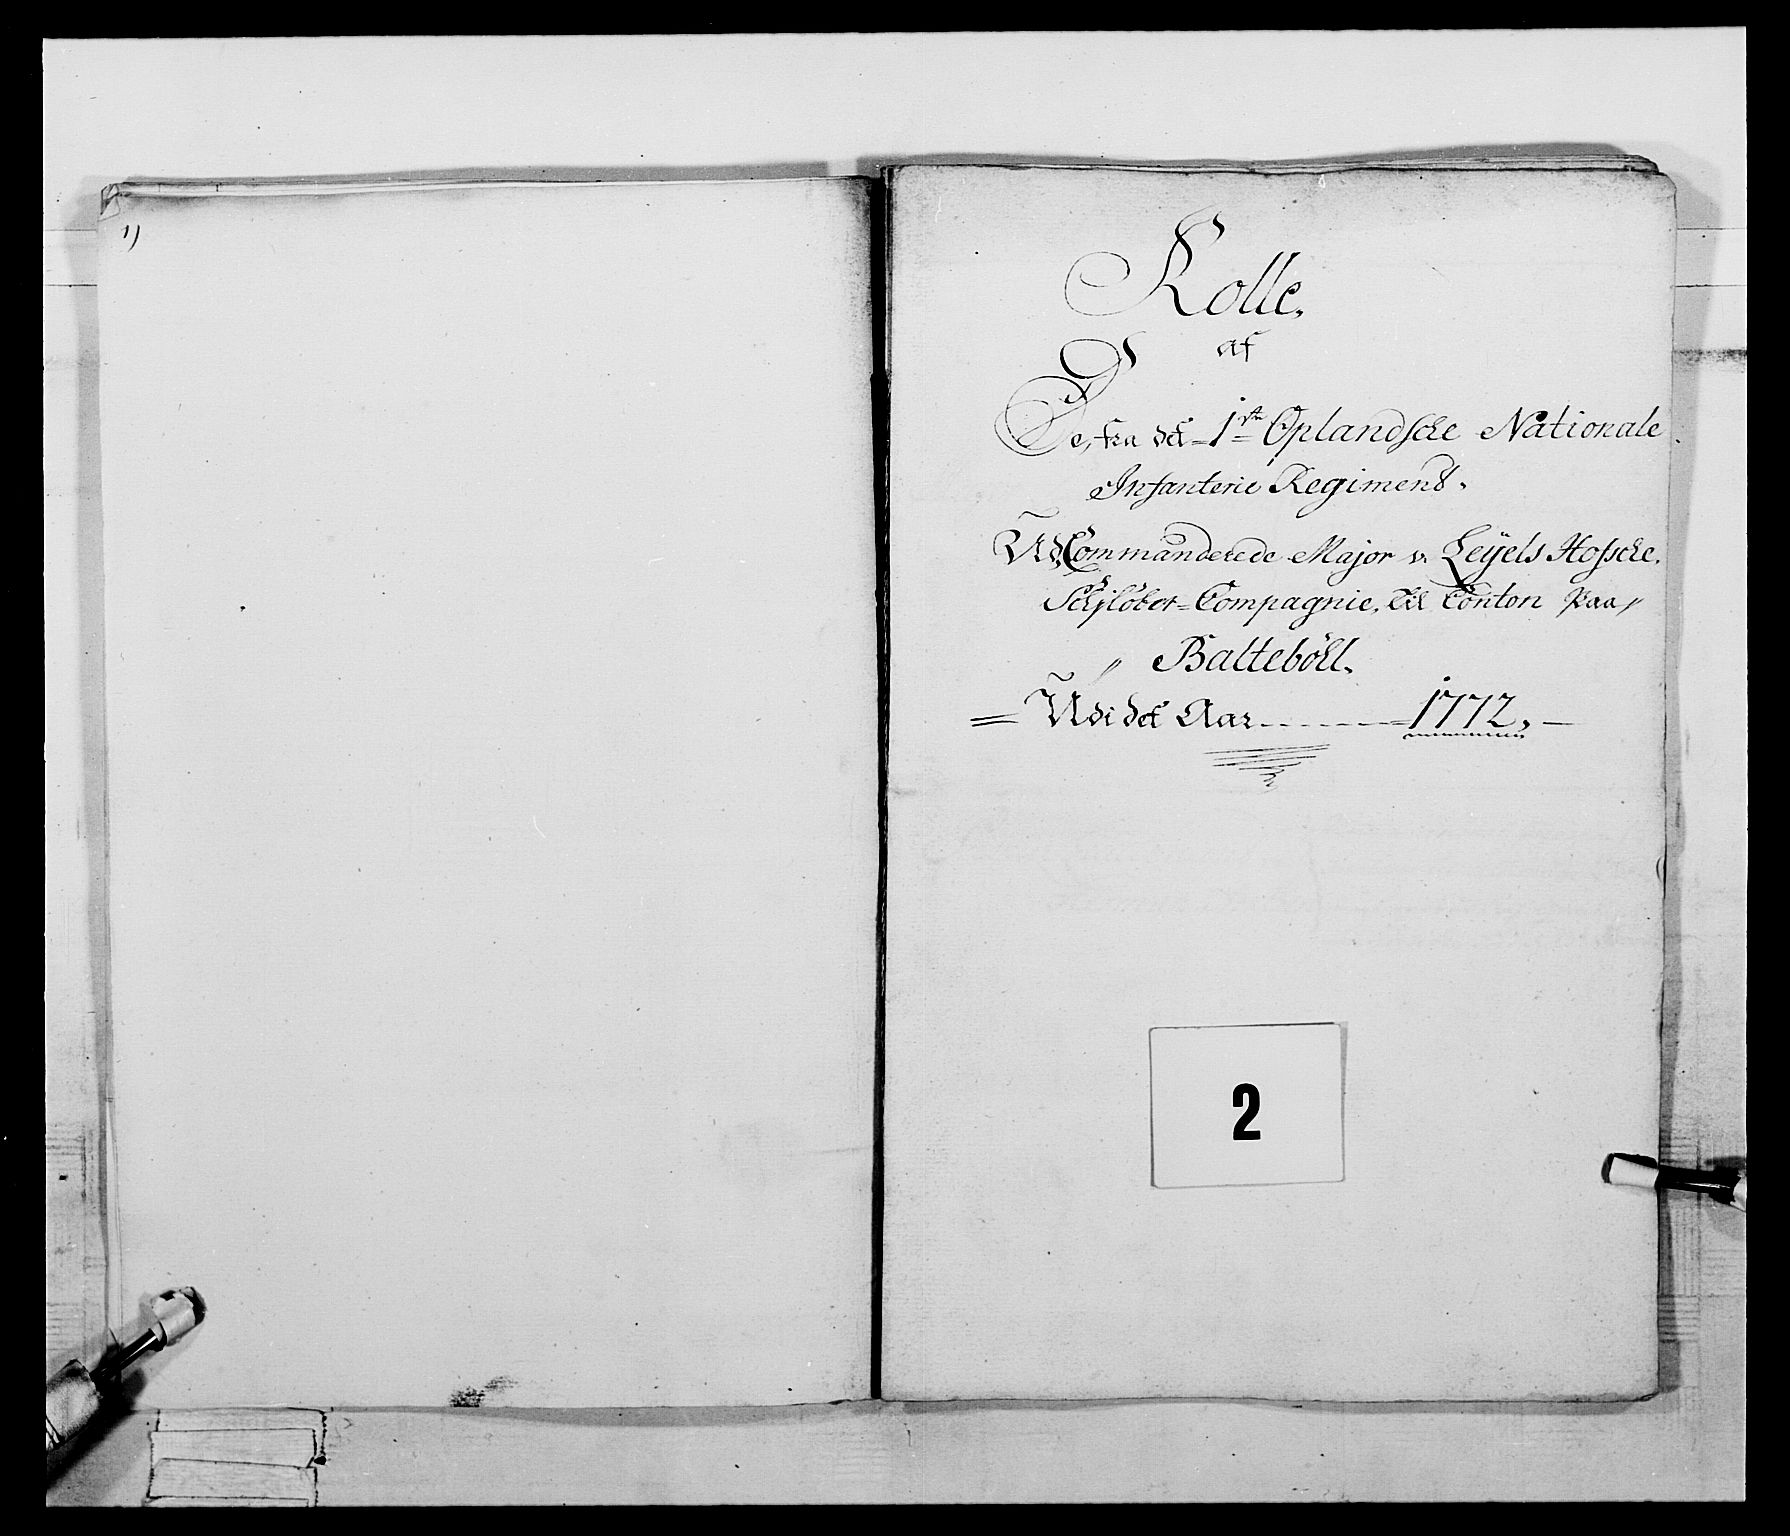 1)
Rolle,
af
De, fra det 1ste Oplandske Nationale
Infanterie Regiment.
Ud Commanderede Major v. Leÿels Hofske.
Schjlöber-Compagnie, til Conton paa
Balteböll.
Udi det Aar 1772,
2